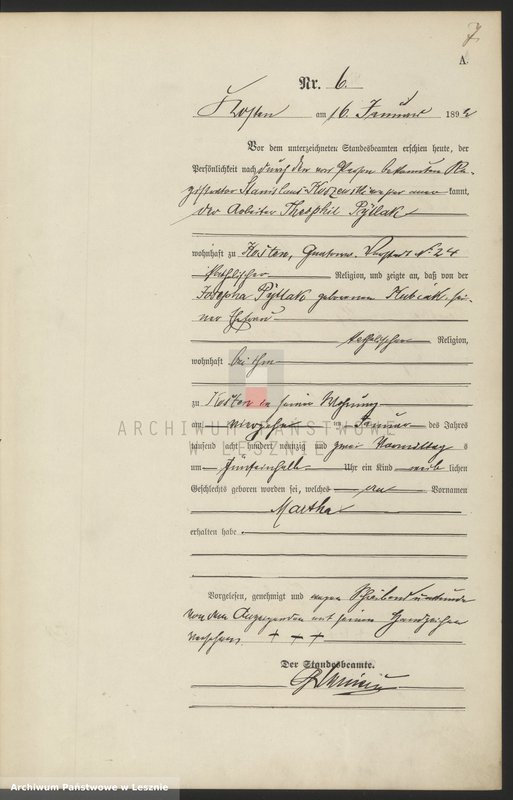 7
A.
Nr. 6.
Kosten am 16. Januar 1892
Vor dem unterzeichneten Standesbeamten erschien heute, der
Persönlichkeit nach durch den von Person bekannten Re-
gistrator Stanislaus kannt,
der Arbeiter Theophil Pyllak
wohnhaft zu Kosten, Vorstadt No 24
katholischer Religion, und zeigte an, daß von der
Josepha Pyllak geborenen Kubiak sei-
ner Ehefrau
katholischer Religion,
wohnhaft bei ihm
zu Kosten in seiner Wohnung
am vierzehn ten Januar des Jahres
tausend acht hundert neunzig und zwei Vormittag s
um fünfeinhalb Uhr ein Kind weib lichen
Geschlechts geboren worden sei, welches den Vornamen
Martha
erhalten habe.
Vorgelesen, genehmigt und wegen Schreibensunkunde
von dem Anzeigenden mit seinem Handzeichen
versehen. + + +
Der Standesbeamte.
ARCHIWUM PAŃSTWOWE
W LESZNIE
Archiwum Państwowe w Lesznie